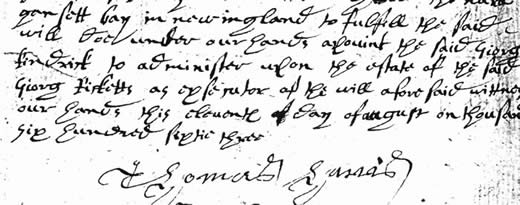 gansett bay in newingland to fulfill the said
will doe under our hands apoint the said Georg
Kendrick to administer upon the estate of the said
Georg Ricketts as exsecutor of the will afore said wittnes
our hands this eleventh of day of august on thousan
six hundred sixtie three
Thomas Harris